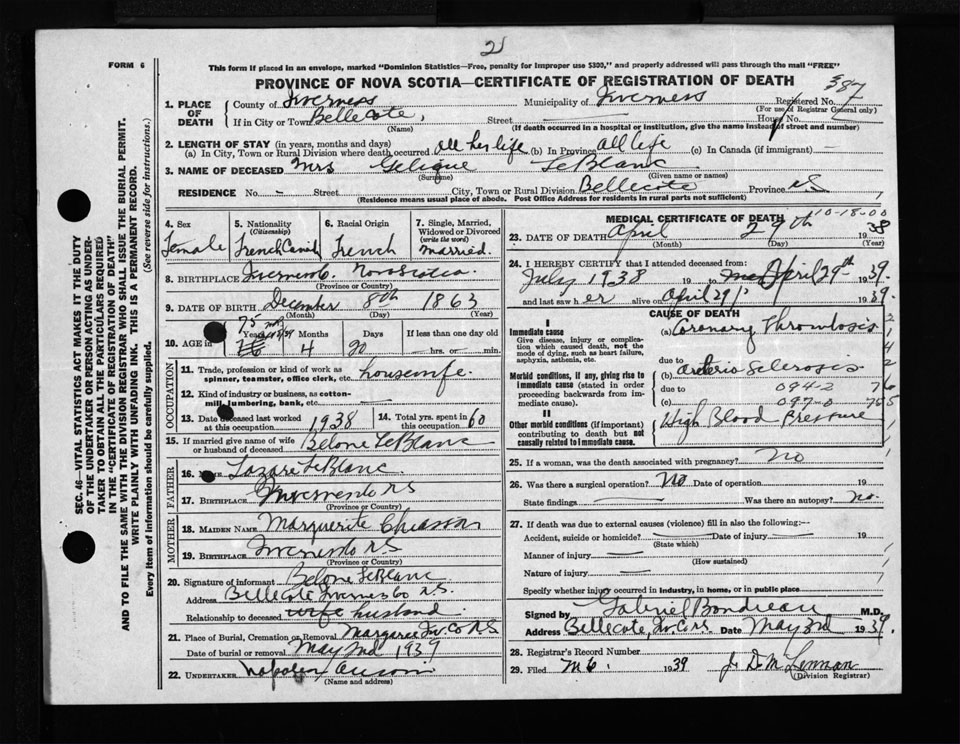 21
FORM 6
This form if placed in an envelope, marked "Dominion Statistics—Free, penalty for improper use $300," and properly addressed will pass through the mail "FREE"
PROVINCE OF NOVA SCOTIA—CERTIFICATE OF REGISTRATION OF DEATH
387
1. PLACE OF DEATH
County of Inverness Municipality of Inverness Registered No.
(For use of Registrar General only)
If in City or Town Bellecote, Street House No.
(Name) (If death occurred in a hospital or institution, give the name instead of street and number)
2. LENGTH OF STAY (in years, months and days)
(a) In City, Town or Rural Division where death occurred all her life (b) In Province all life (c) In Canada (if immigrant) —
3. NAME OF DECEASED Mrs Gelique LeBlanc
(Surname) (Given name or names)
RESIDENCE No. - Street City, Town or Rural Division Bellecote Province NS
(Residence means usual place of abode. Post Office Address for residents in rural parts not sufficient)
4. Sex
Female
5. Nationality (Citizenship)
French Canid
6. Racial Origin
French
7. Single, Married, Widowed or Divorced (write the word)
Married.
8. BIRTHPLACE Inverness Co. Nova Scotia
(Province or Country)
9. DATE OF BIRTH December 8th 1863
(Month) (Day) (Year)
10. AGE in
75
Years
76
Months
4
Days
20
If less than one day old
hrs. or min.
OCCUPATION
11. Trade, profession or kind of work as spinner, teamster, office clerk, etc. housewife
12. Kind of industry or business, as cotton-mill, lumbering, bank, etc. —
13. Date deceased last worked at this occupation 1938
14. Total yrs. spent in this occupation 60
15. If married give name of wife or husband of deceased Belone LeBlanc
FATHER
16. Name Lazare LeBlanc
17. Birthplace Inverness Co NS
(Province or Country)
MOTHER
18. Maiden Name Marguerite Chiasson
19. Birthplace Inverness Co NS
(Province or Country)
20. Signature of informant Belone LeBlanc
Address Bellecote Inverness Co NS.
Relationship to deceased wife husband
21. Place of Burial, Cremation or Removal Margaree Inv. Co NS
Date of burial or removal May 2nd 1939
22. UNDERTAKER
(Name and address)
MEDICAL CERTIFICATE OF DEATH
10-18-00
23. DATE OF DEATH April 29th 1938
(Month) (Day) (Year)
24. I HEREBY CERTIFY that I attended deceased from:
July 1938 19 to April 29th 1939.
and last saw her alive on April 29 1939.
CAUSE OF DEATH
I
Immediate cause
Give disease, injury or complication which caused death, not the mode of dying, such as heart failure, asphyxia, asthenia, etc.
(a) Coronary Thrombosis
due to
Morbid conditions, if any, giving rise to immediate cause (stated in order proceeding backwards from immediate cause).
(b) Arterio Sclerosis
due to 094-2
(c) 097-0
II
Other morbid conditions (if important) contributing to death but not causally related to immediate cause.
High Blood Pressure
25. If a woman, was the death associated with pregnancy? No
26. Was there a surgical operation? No Date of operation 19
State findings — Was there an autopsy? No.
27. If death was due to external causes (violence) fill in also the following:—
Accident, suicide or homicide? — Date of injury — 19
(State which)
Manner of injury —
(How sustained)
Nature of injury —
Specify whether injury occurred in industry, in home, or in public place
Signed by Gabriel Boudreau M.D.
Address Bellecote, Inv. Co NS. Date May 3rd 1939.
28. Registrar's Record Number
29. Filed M 6, 1939 J. D. McLennan
(Division Registrar)
SEC. 46—VITAL STATISTICS ACT MAKES IT THE DUTY
OF THE UNDERTAKER OR PERSON ACTING AS UNDER-
TAKER TO OBTAIN ALL THE PARTICULARS REQUIRED
IN THE "CERTIFICATE OF REGISTRATION OF DEATH"
AND TO FILE THE SAME WITH THE DIVISION REGISTRAR WHO SHALL ISSUE THE BURIAL PERMIT.
WRITE PLAINLY WITH UNFADING INK. THIS IS A PERMANENT RECORD.
Every item of information should be carefully supplied. (See reverse side for instructions.)